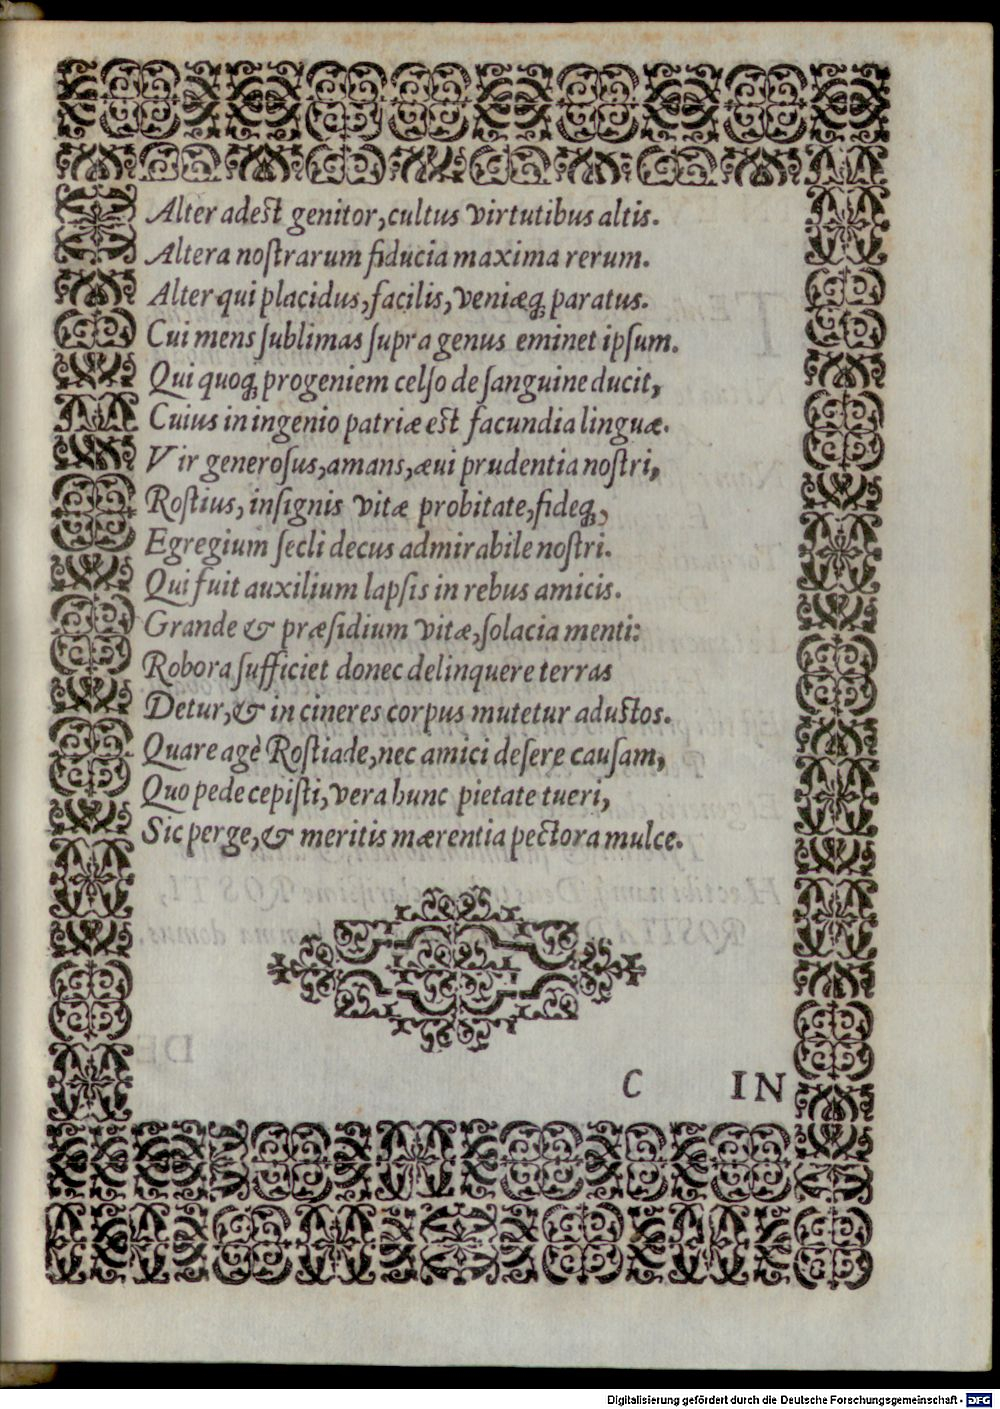 Alter adest genitor, cultus virtutibus altis.
Altera noſtrarum fiducia maxima rerum.
Alter qui placidus, facilis, veniæq́; paratus.
Cui mens ſublimas ſupra genus eminet ipſum.
Qui quoq́; progeniem celſo de ſanguine ducit,
Cuius in ingenio patriæ est facundia linguæ.
Vir generoſus, amans, æui prudentia noſtri,
Roſtius, inſignis vitæ probitate, fideq́;,
Egregium ſecli decus admirabile noſtri.
Qui fuit auxilium lapſis in rebus amicis.
Grande & præſidium vitæ, ſolacia menti:
Robora ſufficiet donec delinquere terras
Detur, & in cineres corpus mutetur adustos.
Quare agè Roſtiade, nec amici deſere cauſam,
Quo pede cepiſti, vera hunc pietate tueri,
Sic perge, & meritis mærentia pectora mulce.
C IN
Digitalisierung gefördert durch die Deutsche Forschungsgemeinschaft - DFG